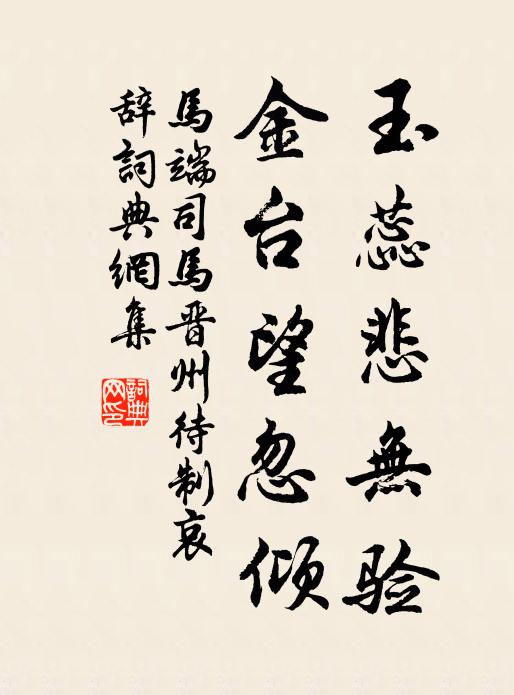 玉蕊悲無验
金台望忽倾
馬端司馬晋州待制哀
辞詞典網集
詞典网印